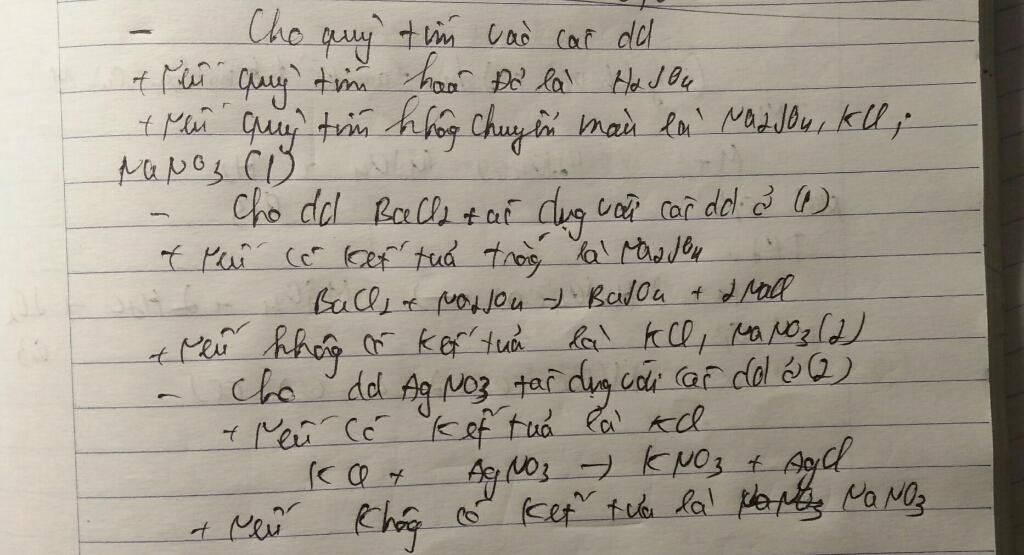 - Cho quỳ tím vào các dd
+ Nếu quỳ tím hoá Đỏ là H2SO4
+ Nếu quỳ tím không chuyển màu là Na2SO4, KCl,
NaNO3 (1)
- Cho dd BaCl2 tác dụng với các dd ở (1)
+ Nếu có kết tủa trắng là Na2SO4
BaCl2 + Na2SO4 → BaSO4 + 2NaCl
+ Nếu không có kết tủa là KCl, NaNO3 (2)
- Cho dd AgNO3 tác dụng với các dd ở (2)
+ Nếu có kết tủa là KCl
KCl + AgNO3 → KNO3 + AgCl
+ Nếu không có kết tủa là NaNO3